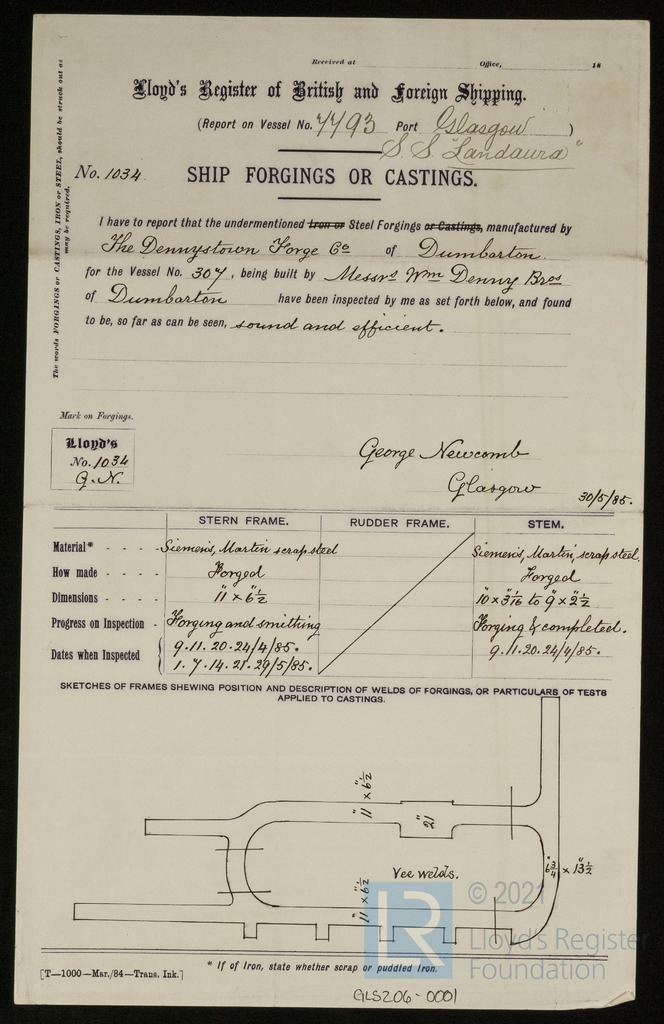 Received at Office, 18
Lloyd's Register of British and Foreign Shipping.
(Report on Vessel No. 7793 Port Glasgow )
S. S. "Landaura"
No. 1034 SHIP FORGINGS OR CASTINGS.
The words FORGINGS or CASTINGS, IRON or STEEL, should be struck out as
may be required.
I have to report that the undermentioned Iron or Steel Forgings or Castings, manufactured by
The Dennystown Forge Co of Dumbarton
for the Vessel No. 307, being built by Messrs Wm Denny Bros
of Dumbarton have been inspected by me as set forth below, and found
to be, so far as can be seen, sound and efficient.
Mark on Forgings.
Lloyd's
No. 1034
G. N.
George Newcomb
Glasgow 30/5/85.
STERN FRAME. RUDDER FRAME. STEM.
Material* - - - - Siemens, Martin scrap steel Siemens, Martin, scrap steel.
How made - - - - Forged Forged
Dimensions - - - - 11" x 6½" 10" x 3 3/16" to 9" x 2½"
Progress on Inspection - Forging and smithing Forging & completed.
Dates when Inspected { 9.11.20.24/4/85. 9.11.20.24/4/85.
1.7.14.21.29/5/85.
SKETCHES OF FRAMES SHEWING POSITION AND DESCRIPTION OF WELDS OF FORGINGS, OR PARTICULARS OF TESTS
APPLIED TO CASTINGS.
11" x 6½"
21"
Vee welds.
6¾" x 13½"
11" x 6½"
LR © 2021
Lloyd's Register
Foundation
* If of Iron, state whether scrap or puddled Iron.
[T—1000—Mar./84—Trans. Ink.]
GLS206-0001